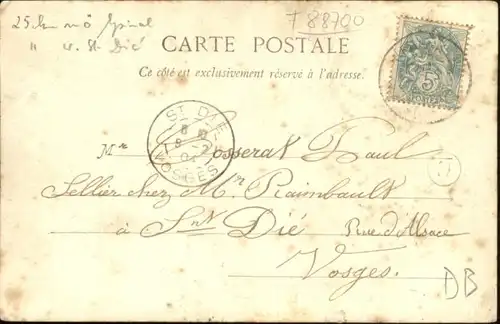 25 km nô Epinal
" St Dié
F 88700
CARTE POSTALE
Ce côté est exclusivement réservé à l'adresse.
5
ST DIÉ
VOSGES
Mr Paul
Sellier chez Mr Raimbault
à Snt Dié Rue d'Alsace
Vosges.
DB